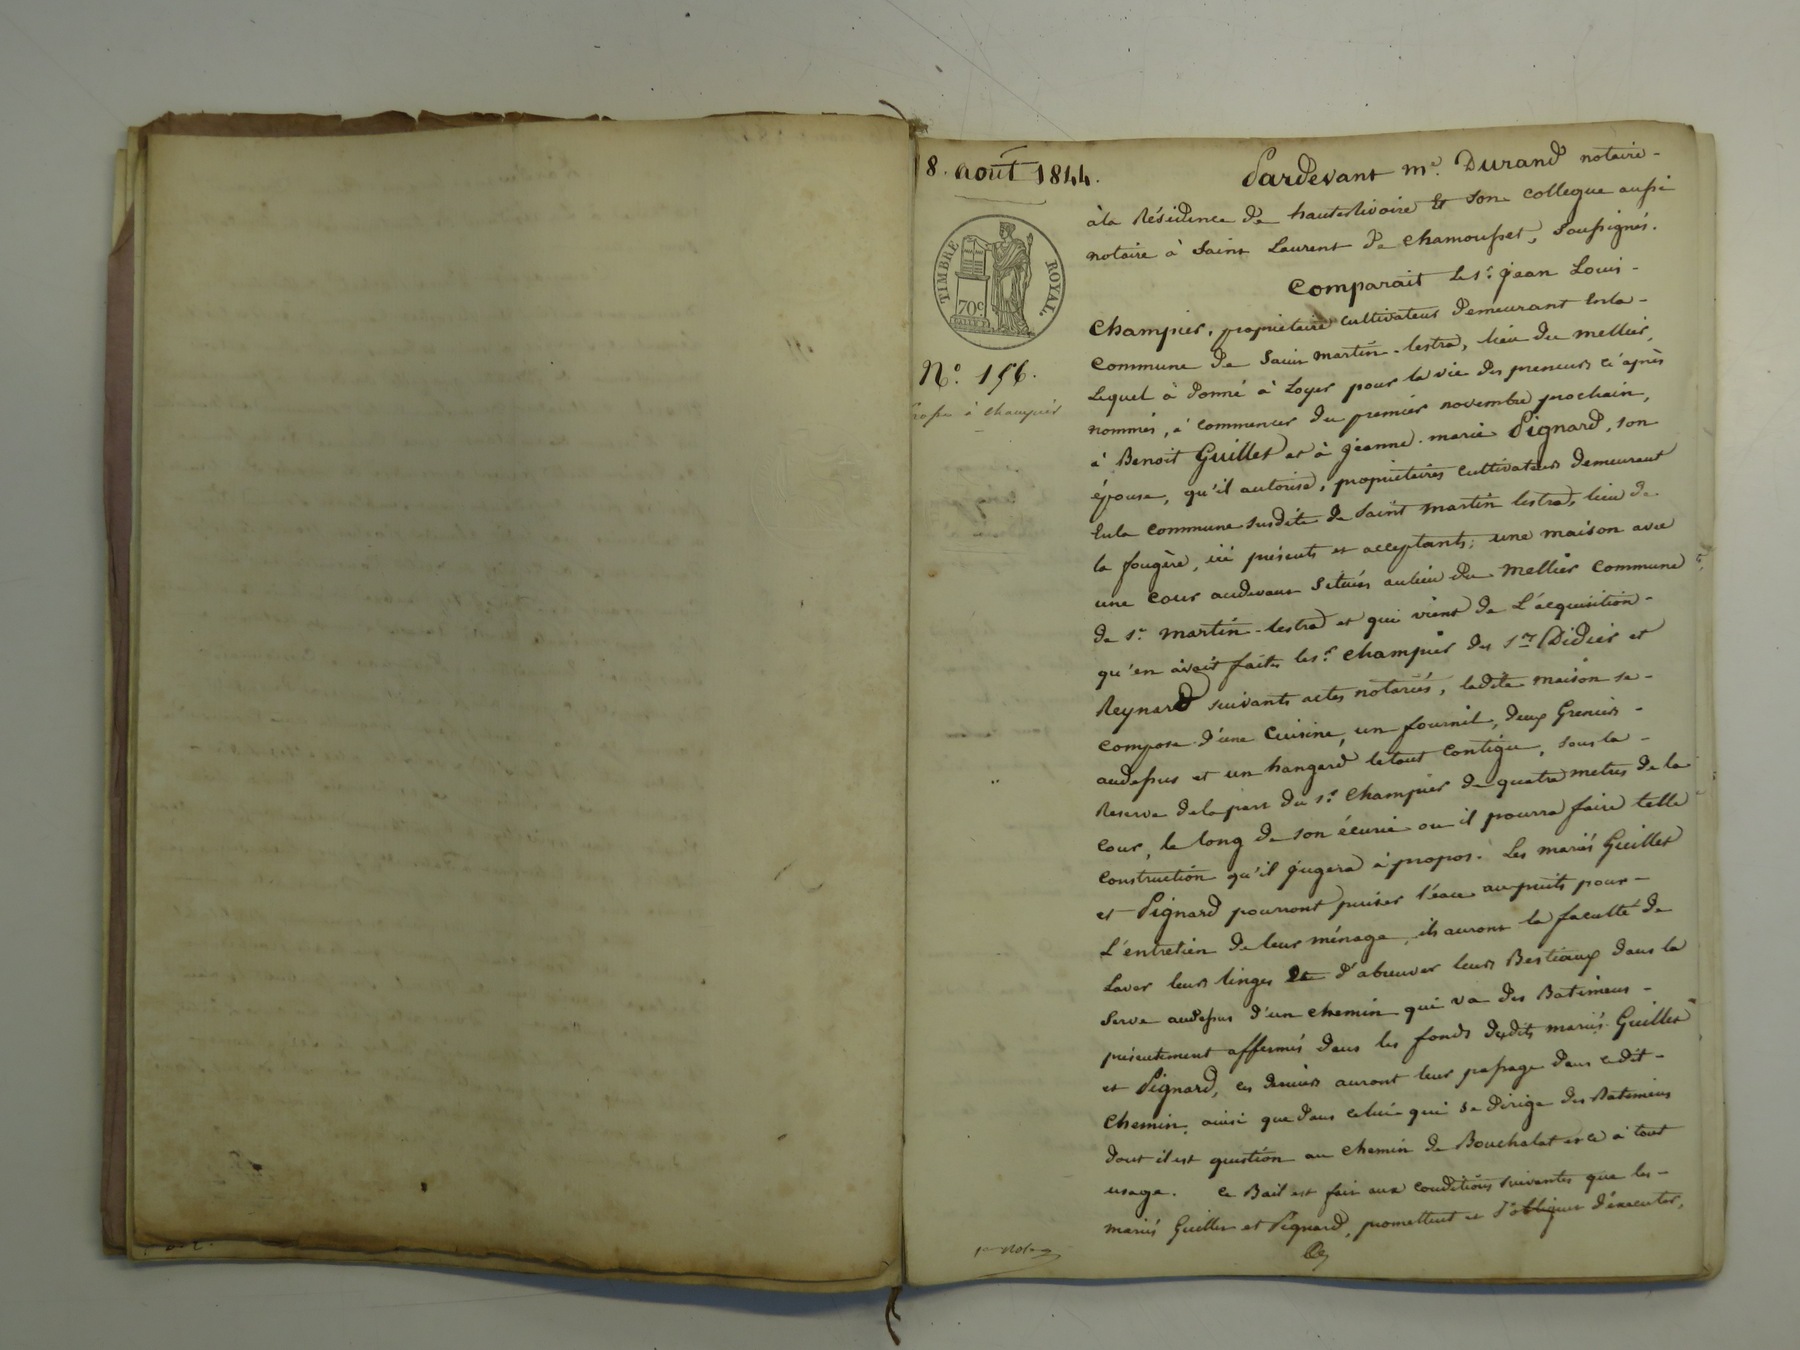 8. août 1844.
TIMBRE ROYAL.
70c.
N.o 156.
à Champier
Pardevant m.e Durand notaire-
àla Résidence de hauterivoire Et son collegue aussi
notaire à Saint Laurent de chamousset, Soussignés.
Comparait le s.r jean Louis-
Champier, propriétaire cultivateur demeurant Enla-
commune de Saint martin-lestra, lieu du mellier,
Lequel à donné à Loyer pour la vie des preneurs ci après
nommés, à commencer du premier novembre prochain,
à Benoit Guillet et à jeanne-marie Pignard, son
épouse, qu'il autorise, propriétaires cultivateurs demeurant
Enla commune susdite de Saint martin lestra, lieu de
la fougère, ici présents et acceptants; une maison avec
une cour audevant Situées aulieu du mellier commune
de s.t martin-lestra et qui vient de L'acquisition-
qu'en avait faite les.r champier des s.rs Didier et
Reynard suivants actes notariés, ladite maison se-
compose d'une cuisine, un fournil, deux Greniers-
audessus et un hangard letout contigu, sous la-
Reserve dela part du s.r Champier de quatre metres de la
cour, le long de son écurie ou il pourra faire telle
Construction qu'il jugera à propos. Les mariés Guillet
et Pignard pourront puiser l'eau aupuits pour-
L'entretien de leur ménage, ils auront la faculté de
Laver leurs linges et d'abreuver leurs Bestiaux dans la
Serve audessus d'un chemin qui va des Batimens-
présentement affermés dans les fonds desdits mariés Guillet
et Pignard, ces derniers auront leur passage dans cedit-
Chemin, ainsi que dans celui qui se dirige des Batimens
dont il est question au chemin de Bouchalat et ce à tout
usage. Ce Bail est fait aux conditions suivantes que les-
mariés Guillet et Pignard, promettent et s'obligent d'executer,